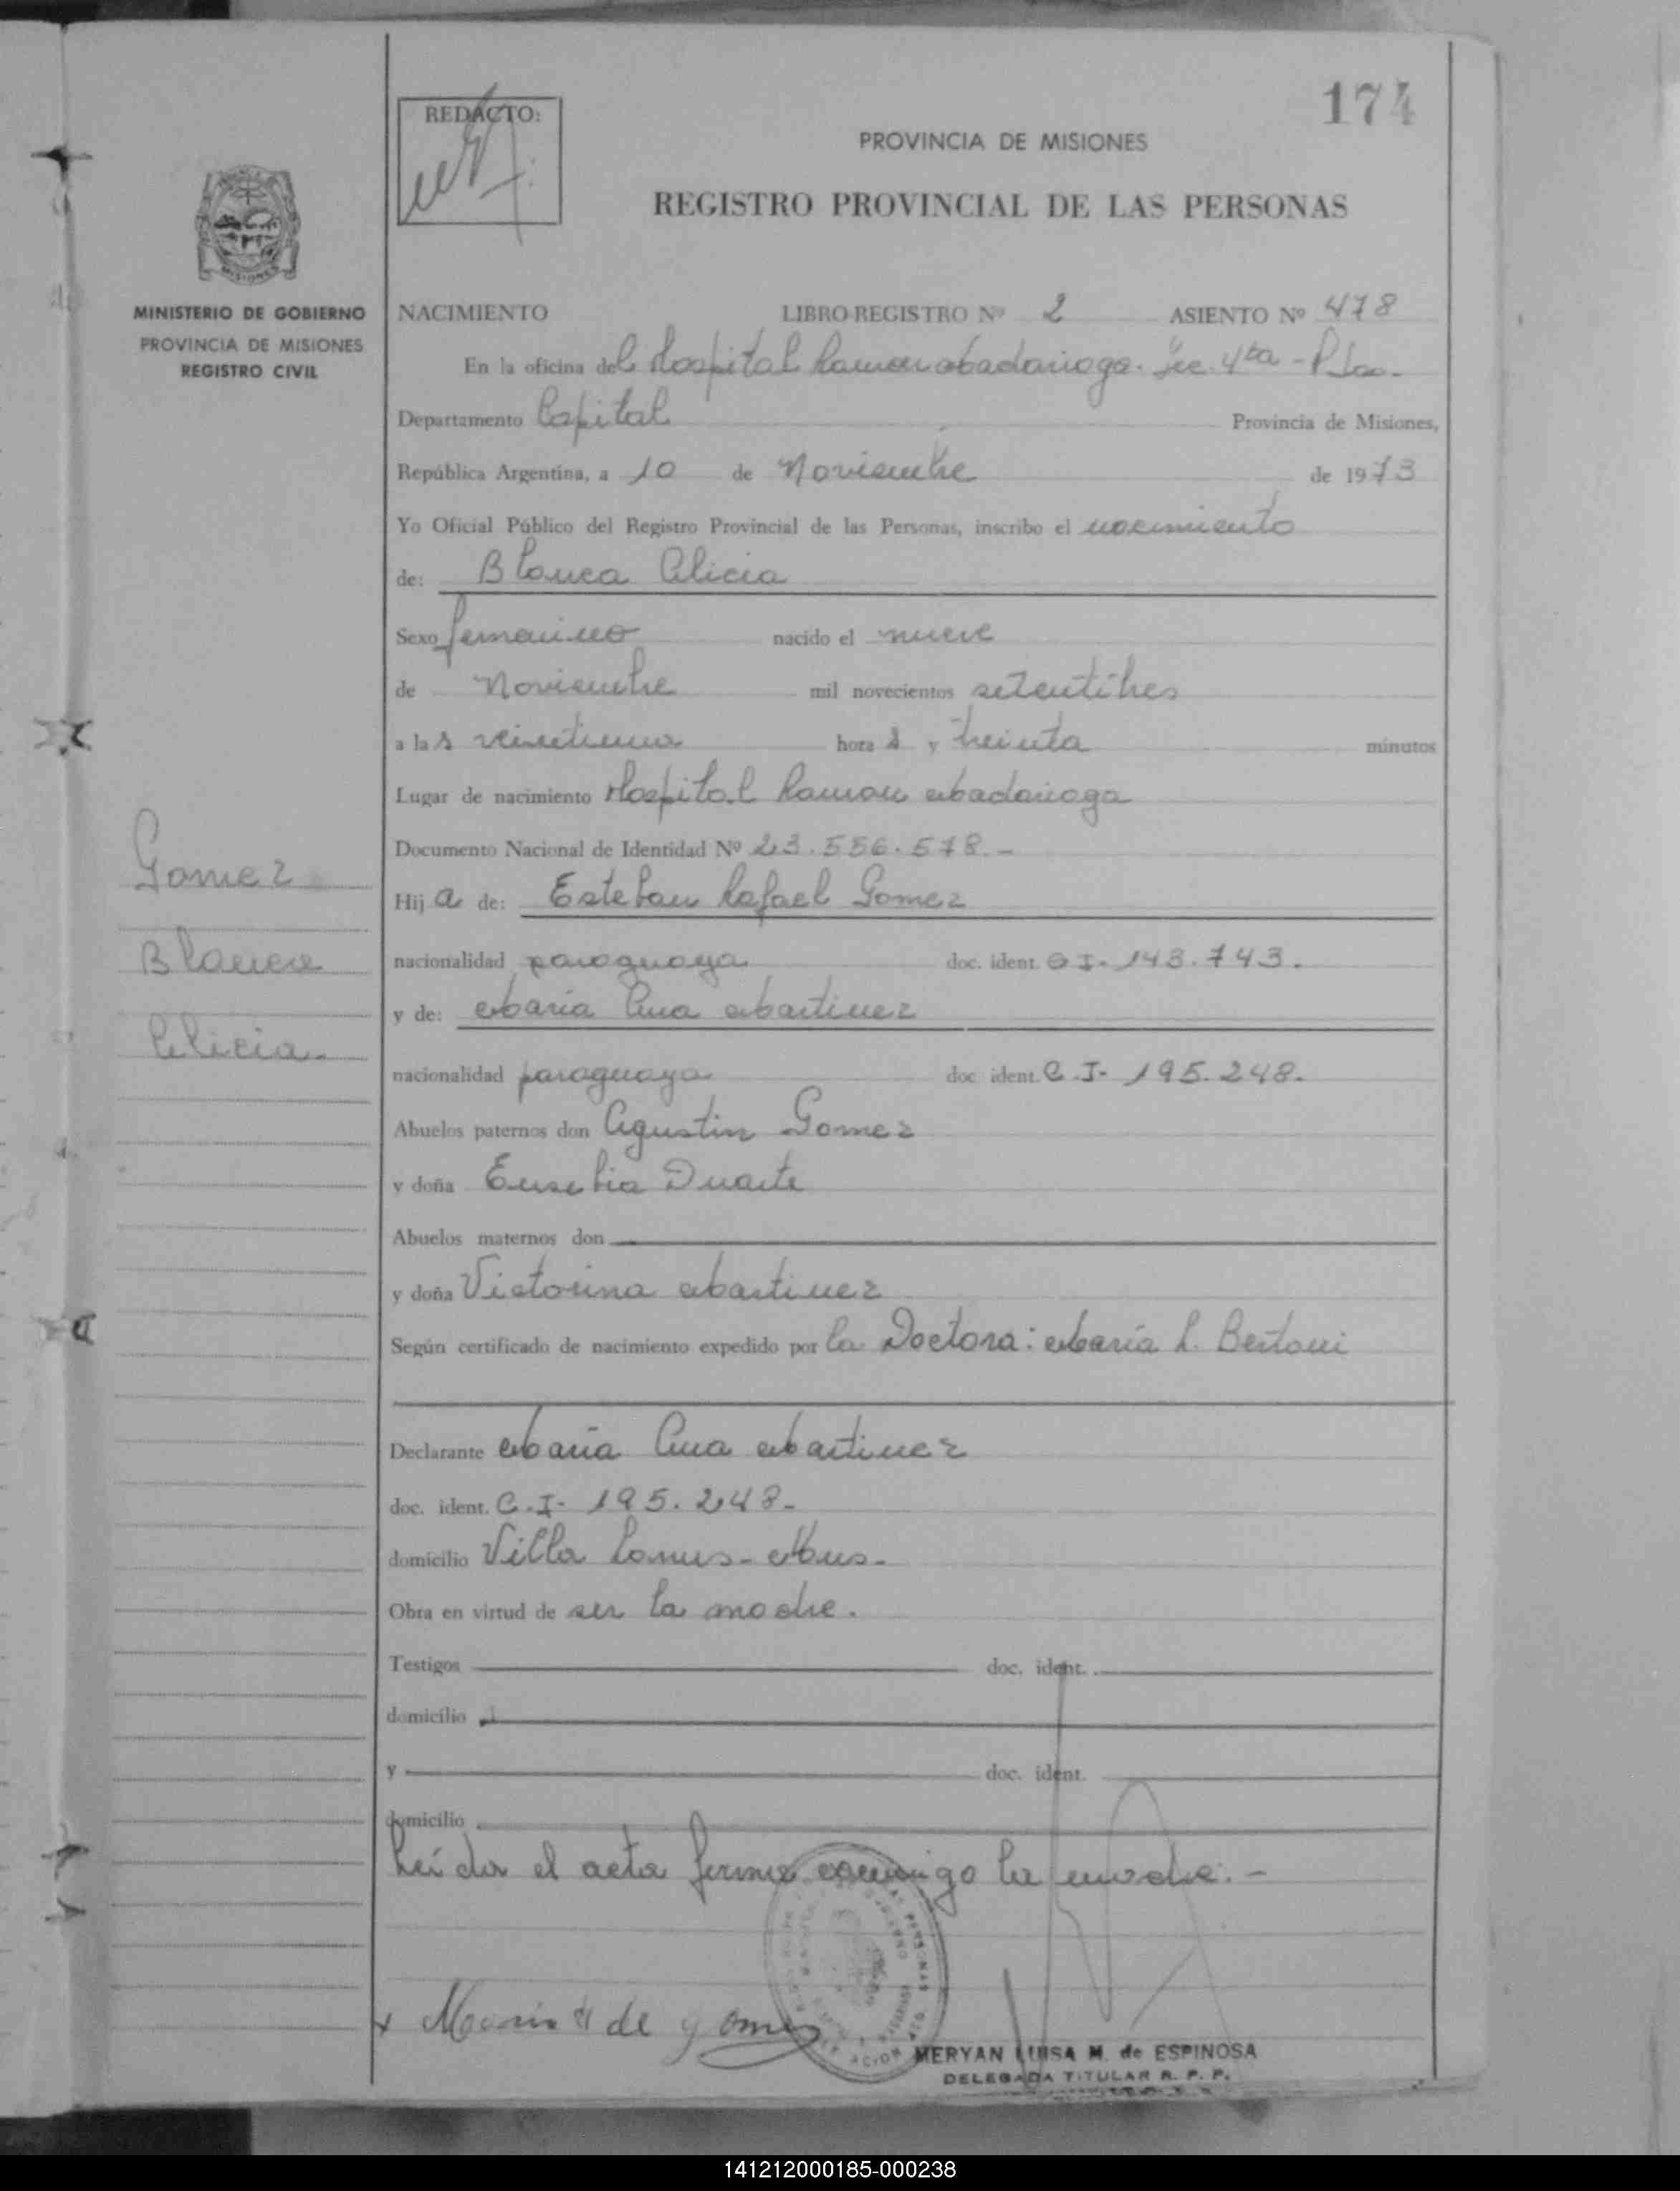 174
REDACTO:
PROVINCIA DE MISIONES
REGISTRO PROVINCIAL DE LAS PERSONAS
MISIONES
MINISTERIO DE GOBIERNO
PROVINCIA DE MISIONES
REGISTRO CIVIL
NACIMIENTO LIBRO REGISTRO Nº 2 ASIENTO Nº 478
En la oficina del Hospital Ramon Madariaga. Sec. 4ta -
Departamento Capital Provincia de Misiones,
República Argentina, a 10 de Noviembre de 1973
Yo Oficial Público del Registro Provincial de las Personas, inscribo el nacimiento
de: Blanca Alicia
Sexo femenino nacido el nueve
de Noviembre mil novecientos setentitres
a las veintiuna horas y treinta minutos
Lugar de nacimiento Hospital Ramon Madariaga
Documento Nacional de Identidad Nº 23.556.578.-
Gomez
Blanca
Alicia
Hija de: Esteban Rafael Gomez
nacionalidad paraguaya doc. ident. C I- 143.743.
y de: Maria Ana Martinez
nacionalidad paraguaya doc ident. C.I- 195.248.
Abuelos paternos don Agustin Gomez
y doña Eusebia Duarte
Abuelos maternos don
y doña Victorina Martinez
Según certificado de nacimiento expedido por la Doctora: María L. Bertoni
Declarante Maria Ana Martinez
doc. ident. C.I- 195.248-
domicilio Villa Lanus- Mnes-
Obra en virtud de ser la madre.
Testigos doc. ident.
domicilio
y doc. ident.
domicilio
Leída el acta firma conmigo la madre.-
x Maria M de gomez
MERYAN LUISA M. de ESPINOSA
DELEGADA TITULAR R. P. P.
141212000185-000238